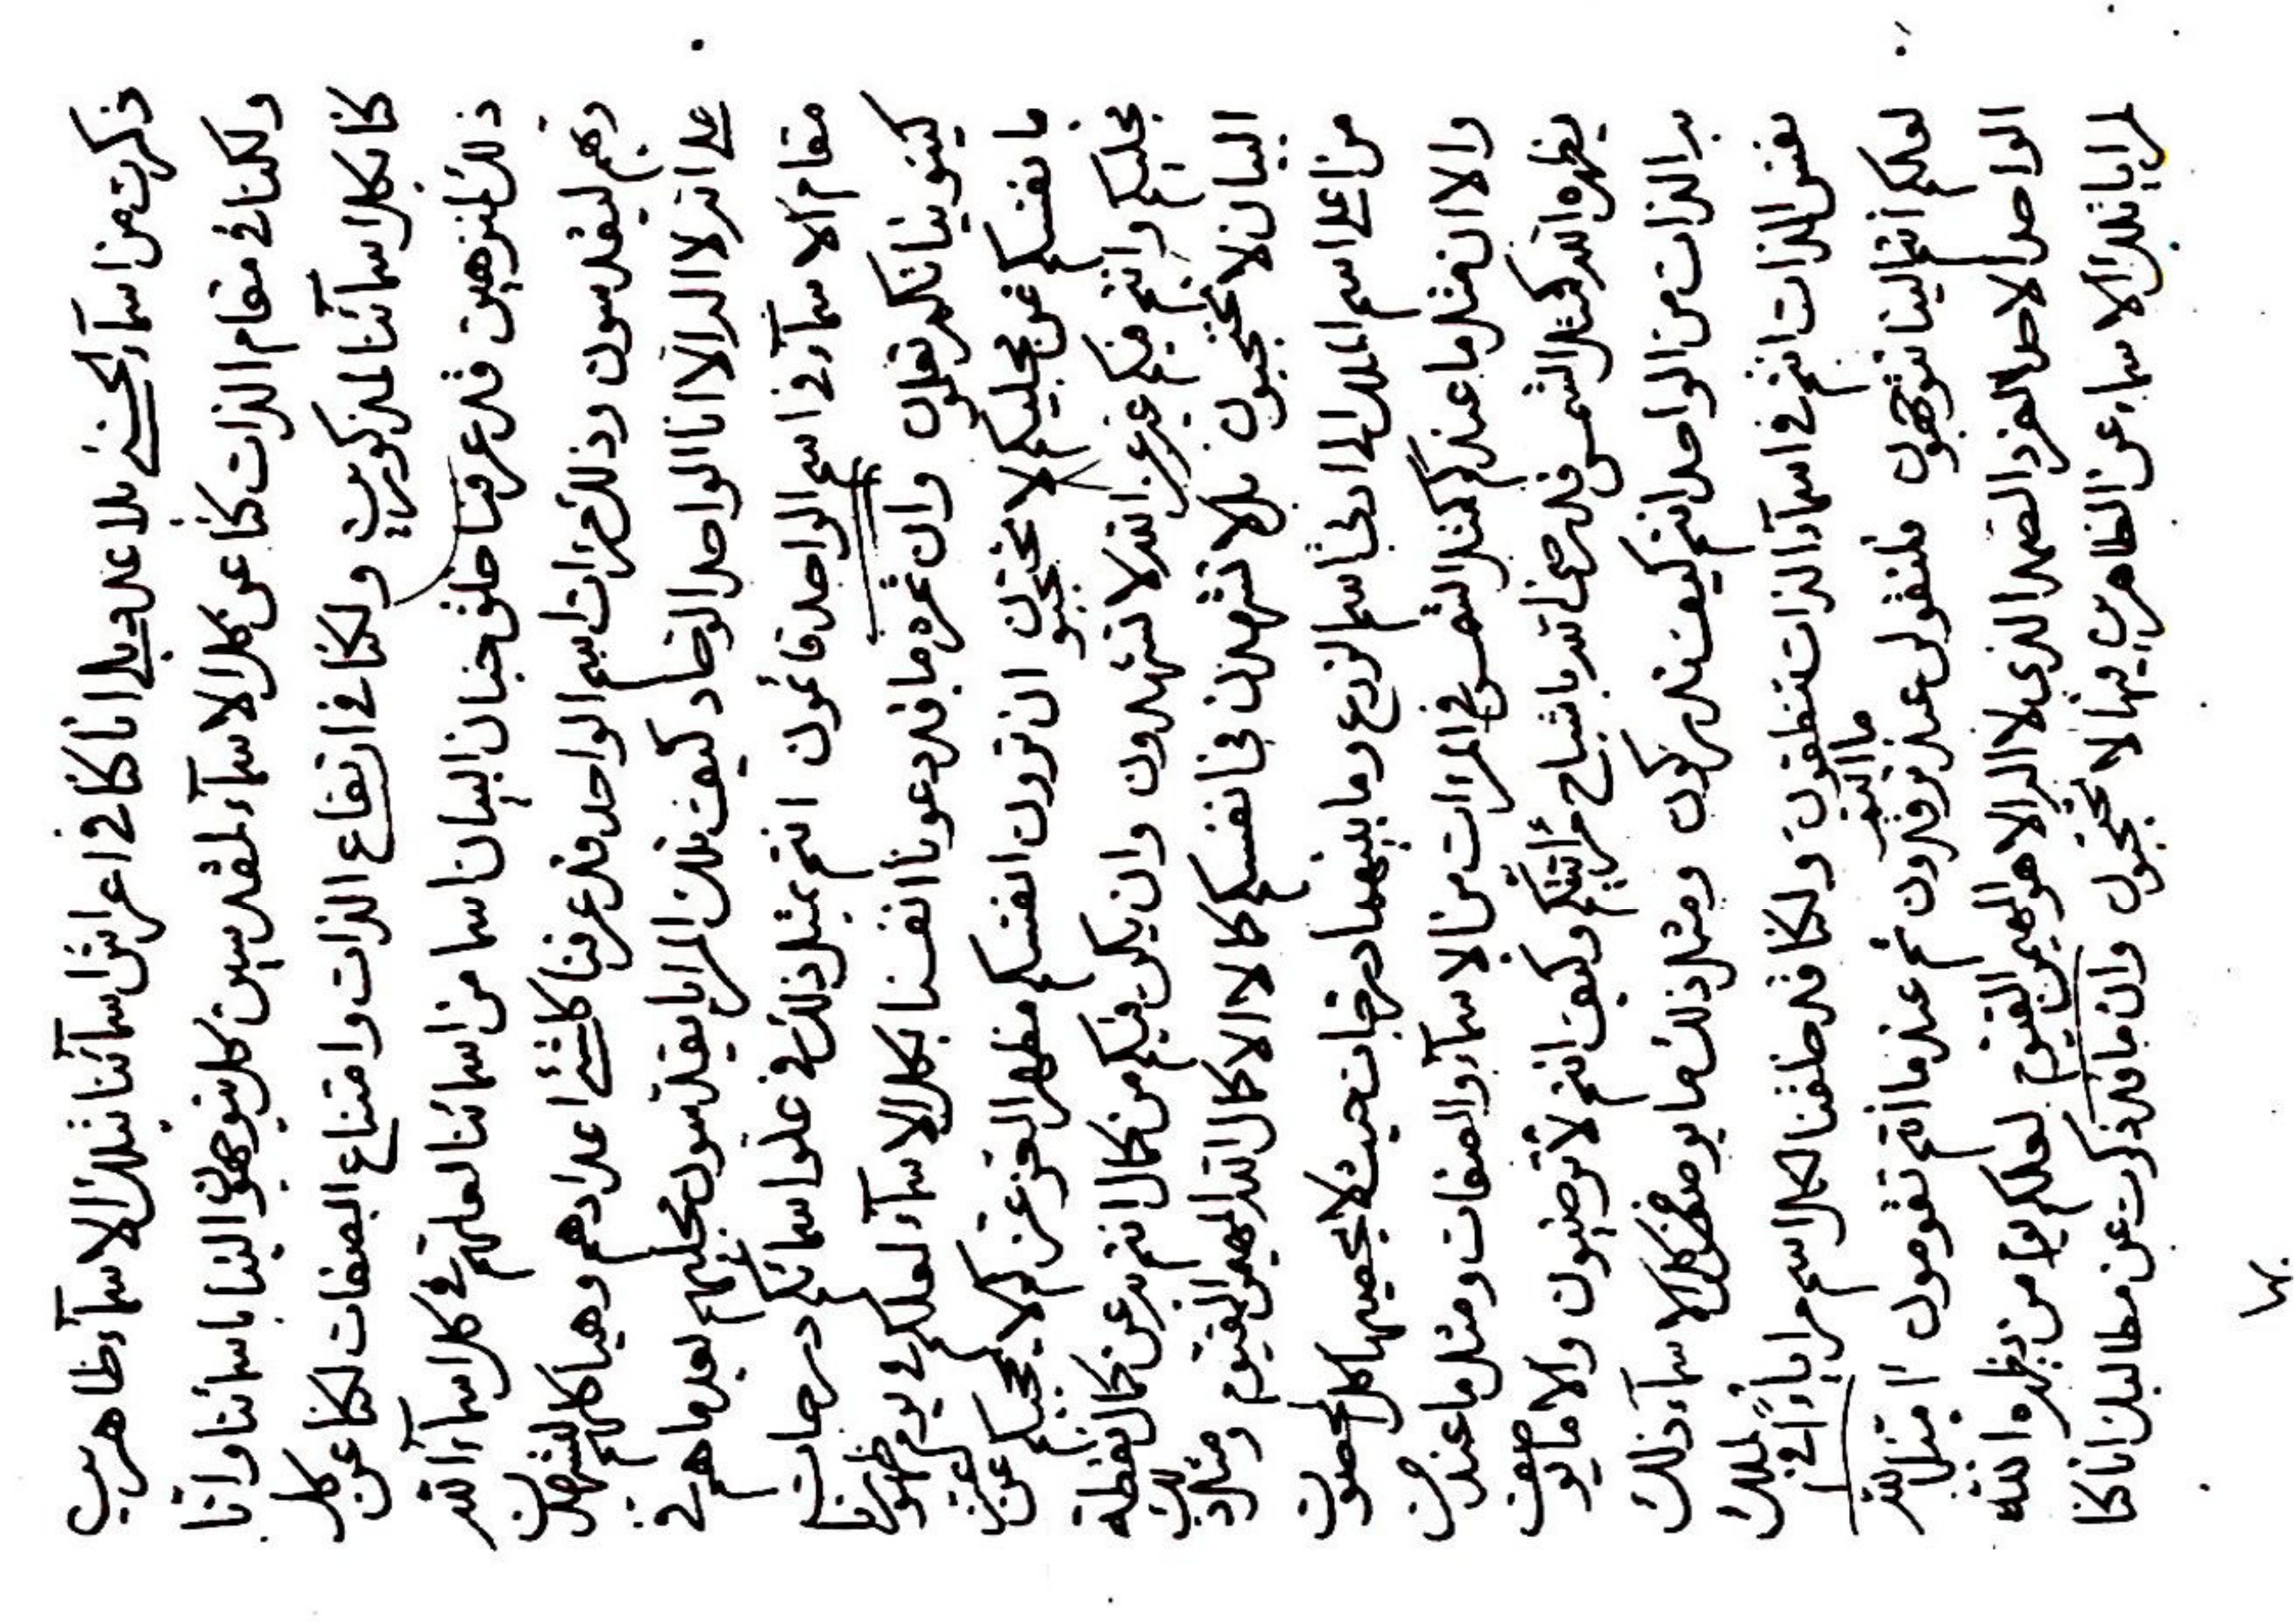 ذكرت من اسمآء الحسنى بلا عدد بلى انا كنا فى اعراش اسمآئنا بتلك الاسمآء ظاهرين
ولكنا فى مقام الذات كنا عن كل الاسمآء لمقدسين كل بتوجهوا الينا باسمائنا وانا
كنا بكل اسمآئنا لمذكورين ولكنا فى ارتفاع الذات وامتناع الصفات لكنا عن كل
ذلك لمنزهين قد عرفنا خلق جنان البيان اسما من اسمائنا لعلهم فى كل اسمآء الله
ربهم ليقدسون وذلك مرات اسم الواحد قد عرفنا كلشئ اعدادهم وهياكلهم ليشهدن
على انه لا اله الا انا الواحد الوحاد كيف تلك المرايا يقدسون مجليهم بعد ما هم فى
مقام الاسمآء فى اسم الواحد قائمون انتم بمثل ذلك فى علو اسمائكم درجات
كينونياتكم تعلون وان ثمرة ما قد دعونا انفسنا بكل الاسمآء لعلكم فى يوم ظهورنا
ما نفسكم عن مجليكم لا تحتجبون ان ترون انفسكم مظهر العز عزكم لا يحجبكم عن عز
مجليكم وانتم فيكم عز عز الله لا تشهدون وان يكن فيكم من كمال انتم به عن كمال نقطة
البيان لا تحتجبون بل لا تشهدن فى انفسكم كمالا الا كمال الله المهيمن القيوم ومثل ذلك
من اعلى اسم الملك الى ادنى اسم الزرع وما بينهما درجات حيث لا يحصيها كل المحصون
والا ان مثل ما عندكم كمثل الشمس فى المرات من الاسمآء والصفات ومثل ما عند من
يظهره الله كمثل الشمس قد رضى الله باشباح مرآتيتكم وكيف انتم لا ترضيون والا ما يوصف
به الذات من الواحد انتم كيف تدركون ومثل ذلك ما يوصف كل الاسمآء ذلك
نفس الذات انتم فى اسمآء الذات تنطقون ولكنا قد خلقنا لكل اسم مرايا لا الى تلك
لعلكم انتم الينا تتوجهون فلتقولى عند ترقدون ثم عند ما انتم تقومون ما انتم
الواحد الاحد الفرد الصمد الذى لا اله الا هو المهيمن القيوم لعلكم يوم من يظهره الله
لمرايا تلك الاسماء عن الظاهر فيها لا تحتجبون وان ما قد ذكرت عن مطالبك انا كنا
بها